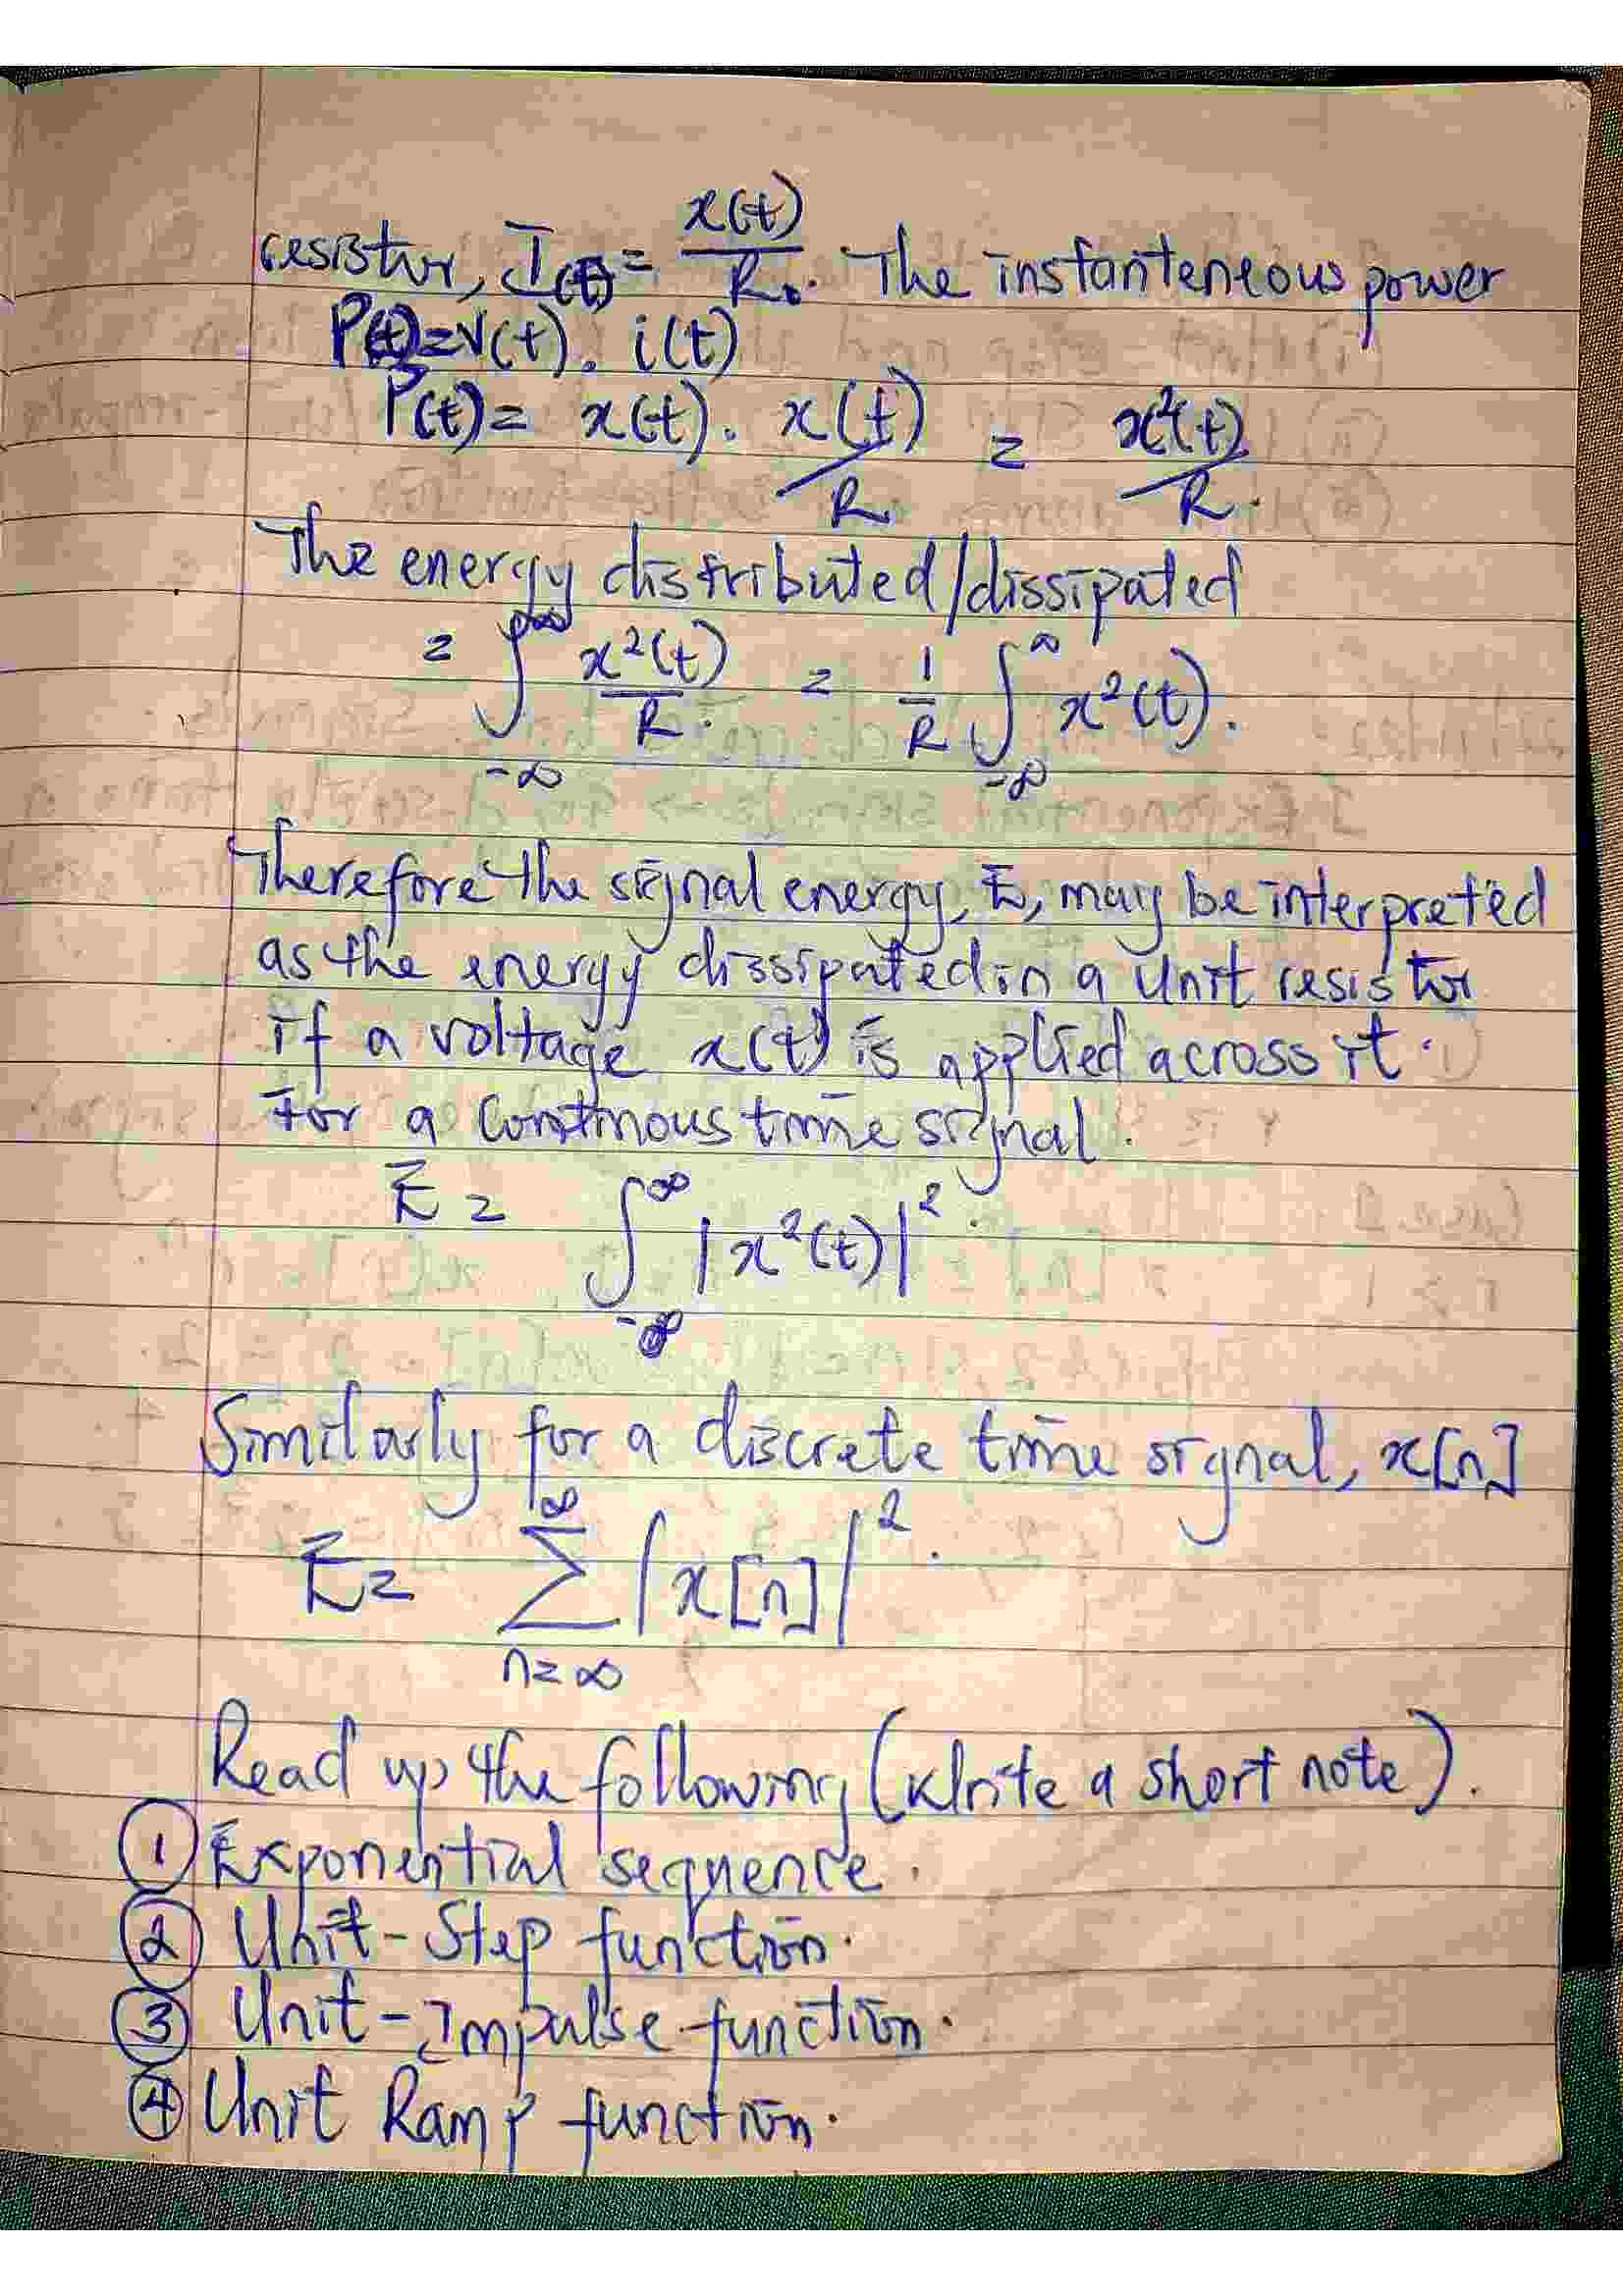 resistor, I(t) = x(t)/R. The instanteneous power
P(t) = v(t). i(t)
P(t) = x(t). x(t)/R = x²(t)/R.
The energy distributed/dissipated
= ∫_{-∞}^{∞} x²(t)/R. = 1/R ∫_{-∞}^{∞} x²(t).
Therefore the signal energy, E, may be interpreted
as the energy dissipated in a unit resistor
if a voltage x(t) is applied across it.
For a continous time signal.
E = ∫_{-∞}^{∞} |x²(t)|².
Similarly for a discrete time signal, x[n]
E = ∑_{n=∞}^{∞} |x[n]|².
Read up the following (Write a short note).
① Exponential sequence.
② Unit-Step function.
③ Unit-Impulse function.
④ Unit Ramp function.